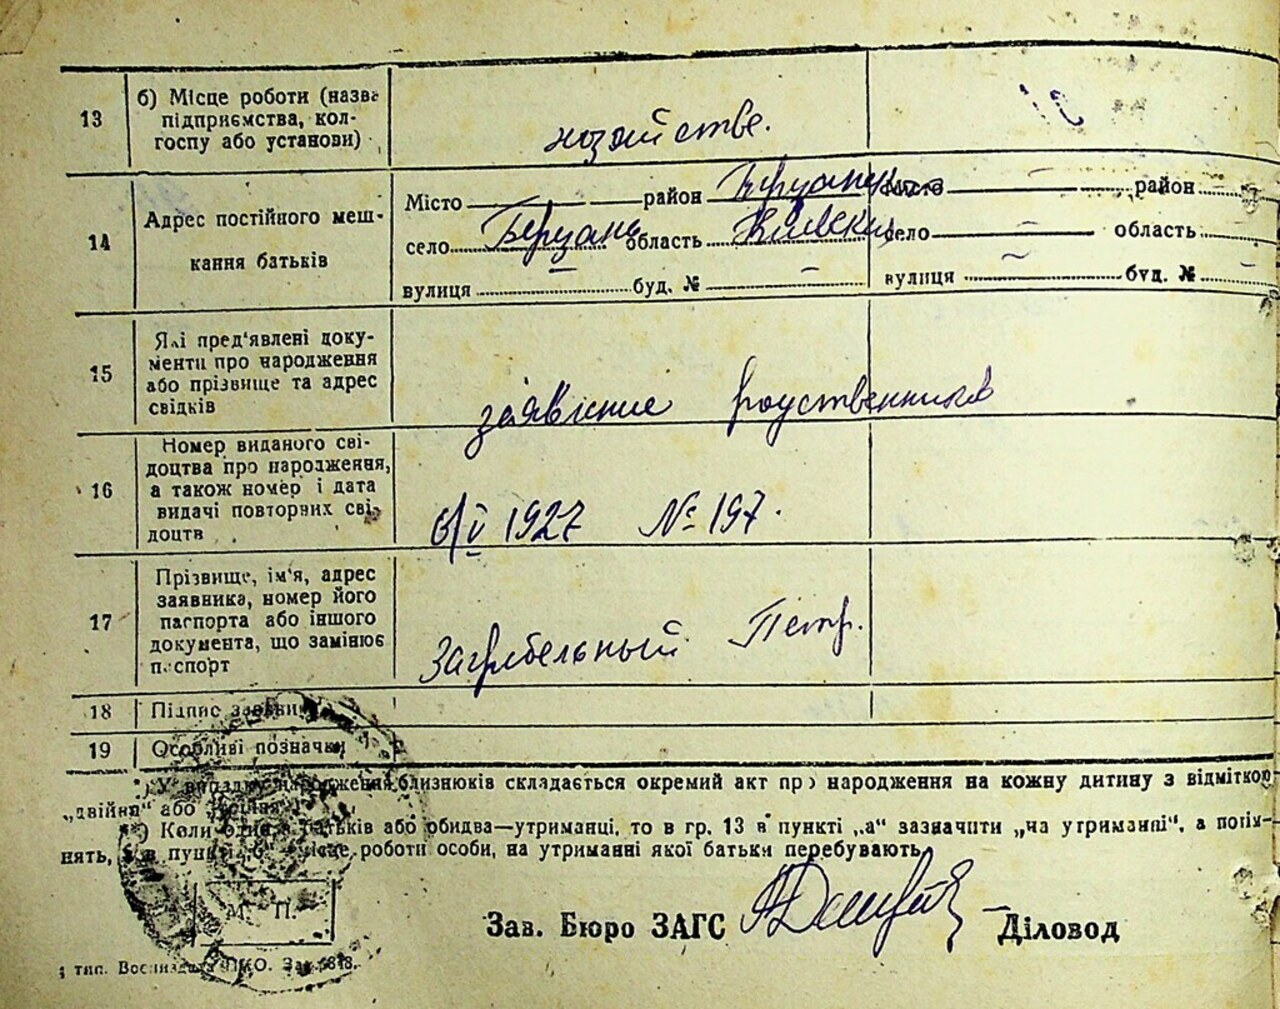 13
б) Місце роботи (назва
підприємства, кол-
госпу або установи)
хозяйстве.
14
Адрес постійного меш-
кання батьків
Місто район
село Березань область Киевск
вулиця — буд. № —
Місто — район
село — область
вулиця — буд. № —
15
Які пред'явлені доку-
менти про народження
або прізвище та адрес
свідків
заявление родственников
16
Номер виданого сві-
доцтва про народження,
а також номер і дата
видачі повторних сві-
доцтв
6/V 1927 № 197.
17
Прізвище, ім'я, адрес
заявника, номер його
паспорта або іншого
документа, що замінює
паспорт
Загребельный Петр.
18
Підпис заявника
19
Особливі позначки
*) У випадку народження близнюків складається окремий акт про народження на кожну дитину з відміткою
„двійня“ або
Коли один з батьків або обидва—утриманці, то в гр. 13 в пункті „а“ зазначити „на утриманні“, а потім-
нять, в пункті місце роботи особи, на утриманні якої батьки перебувають.
М. П.
Зав. Бюро ЗАГС
Діловод